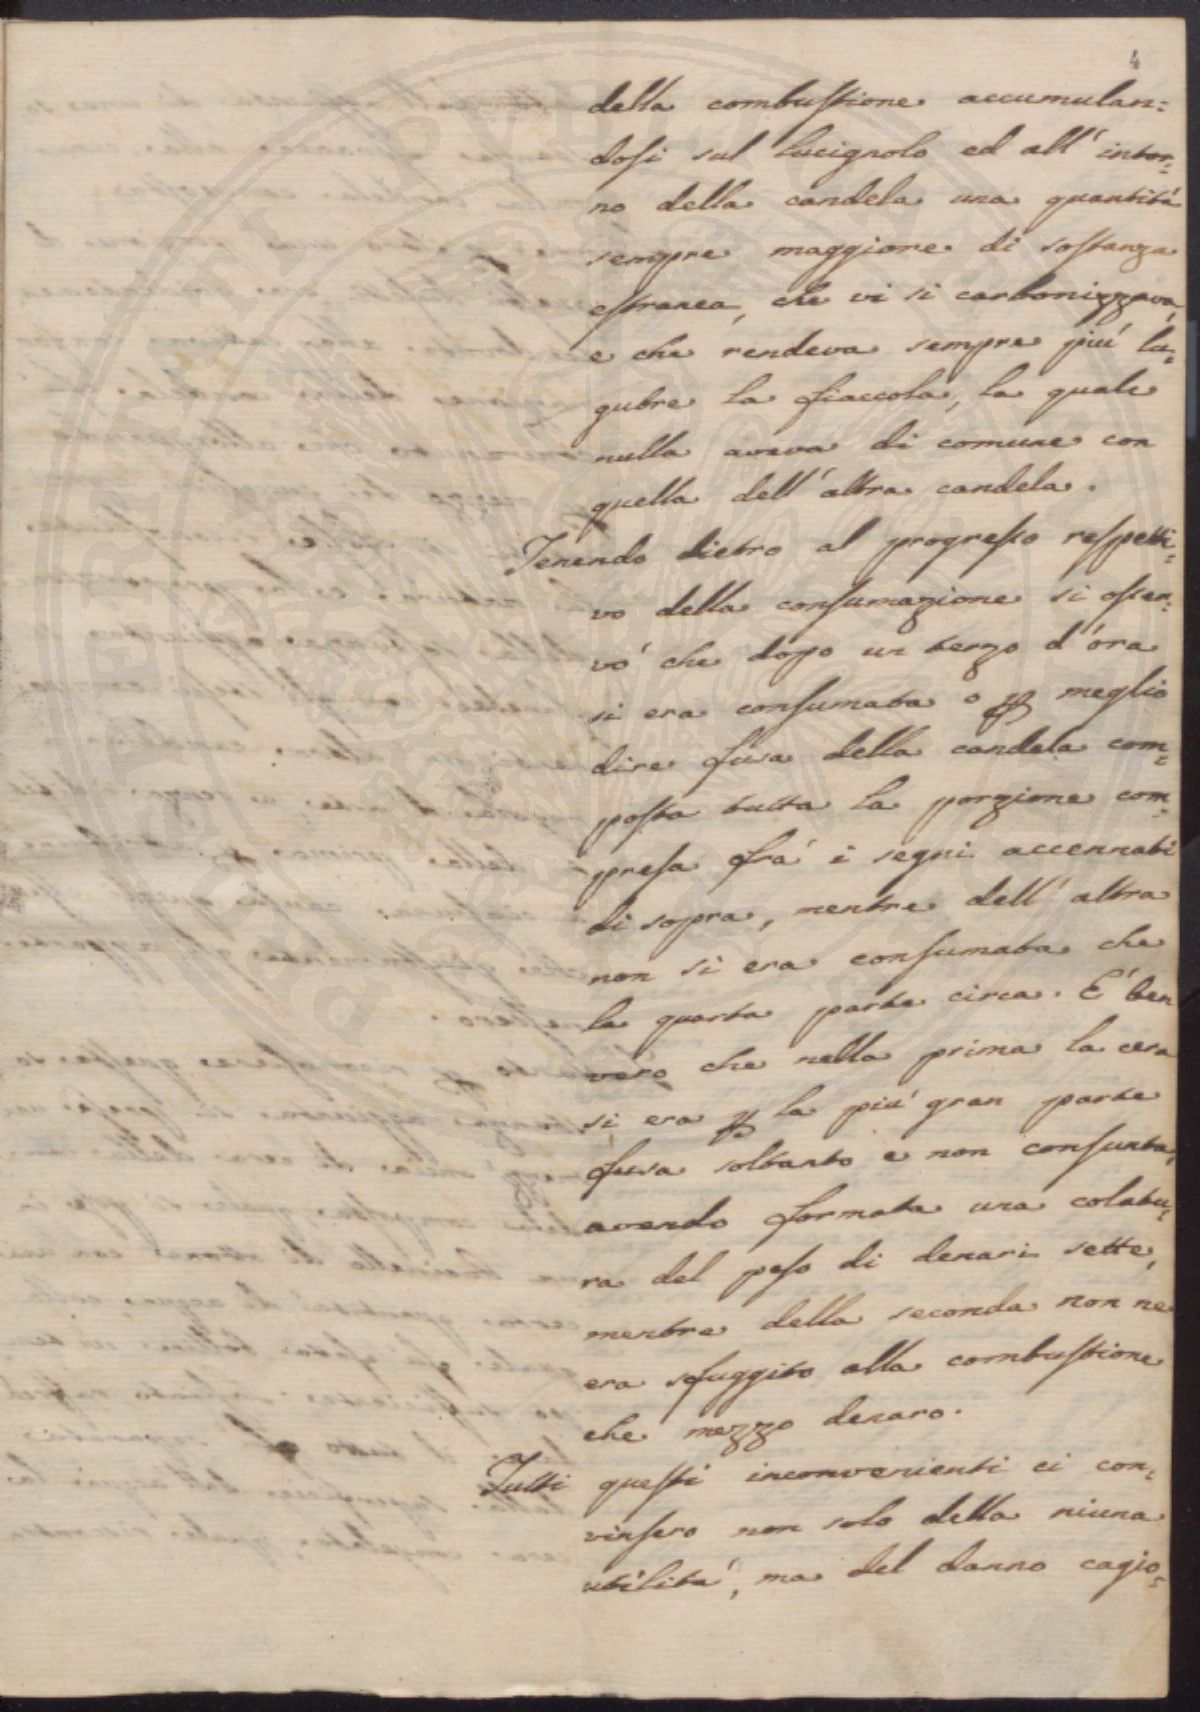 4
della combustione accumulan=
dosi sul lucignolo ed all'intor=
no della candela una quantitá
sempre maggiore di sostanza
estranea, che vi si carbonizzava,
e che rendeva sempre piú lu=
gubre la fiaccola, la quale
nulla aveva di comune con
quella dell'altra candela.
Tenendo dietro al progresso respetti=
vo della consumazione si osser=
vó che dopo un terzo d'ora
si era consumata o ꝑ meglio
dire fusa della candela com=
posta tutta la porzione com=
presa frá i segni accennati
di sopra, mentre dell'altra
non si era consumata che
la quarta parte circa. É ben
vero che nella prima la cera
si era ꝑ la piú gran parte
fusa soltanto e non consunta,
avendo formata una colatu=
ra del peso di denari sette,
mentre della seconda non ne
era sfuggito alla combustione
che mezzo denaro.
Tutti questi inconvenienti ci con=
vinsero non solo della niuna
utilitá, ma del danno cagio=